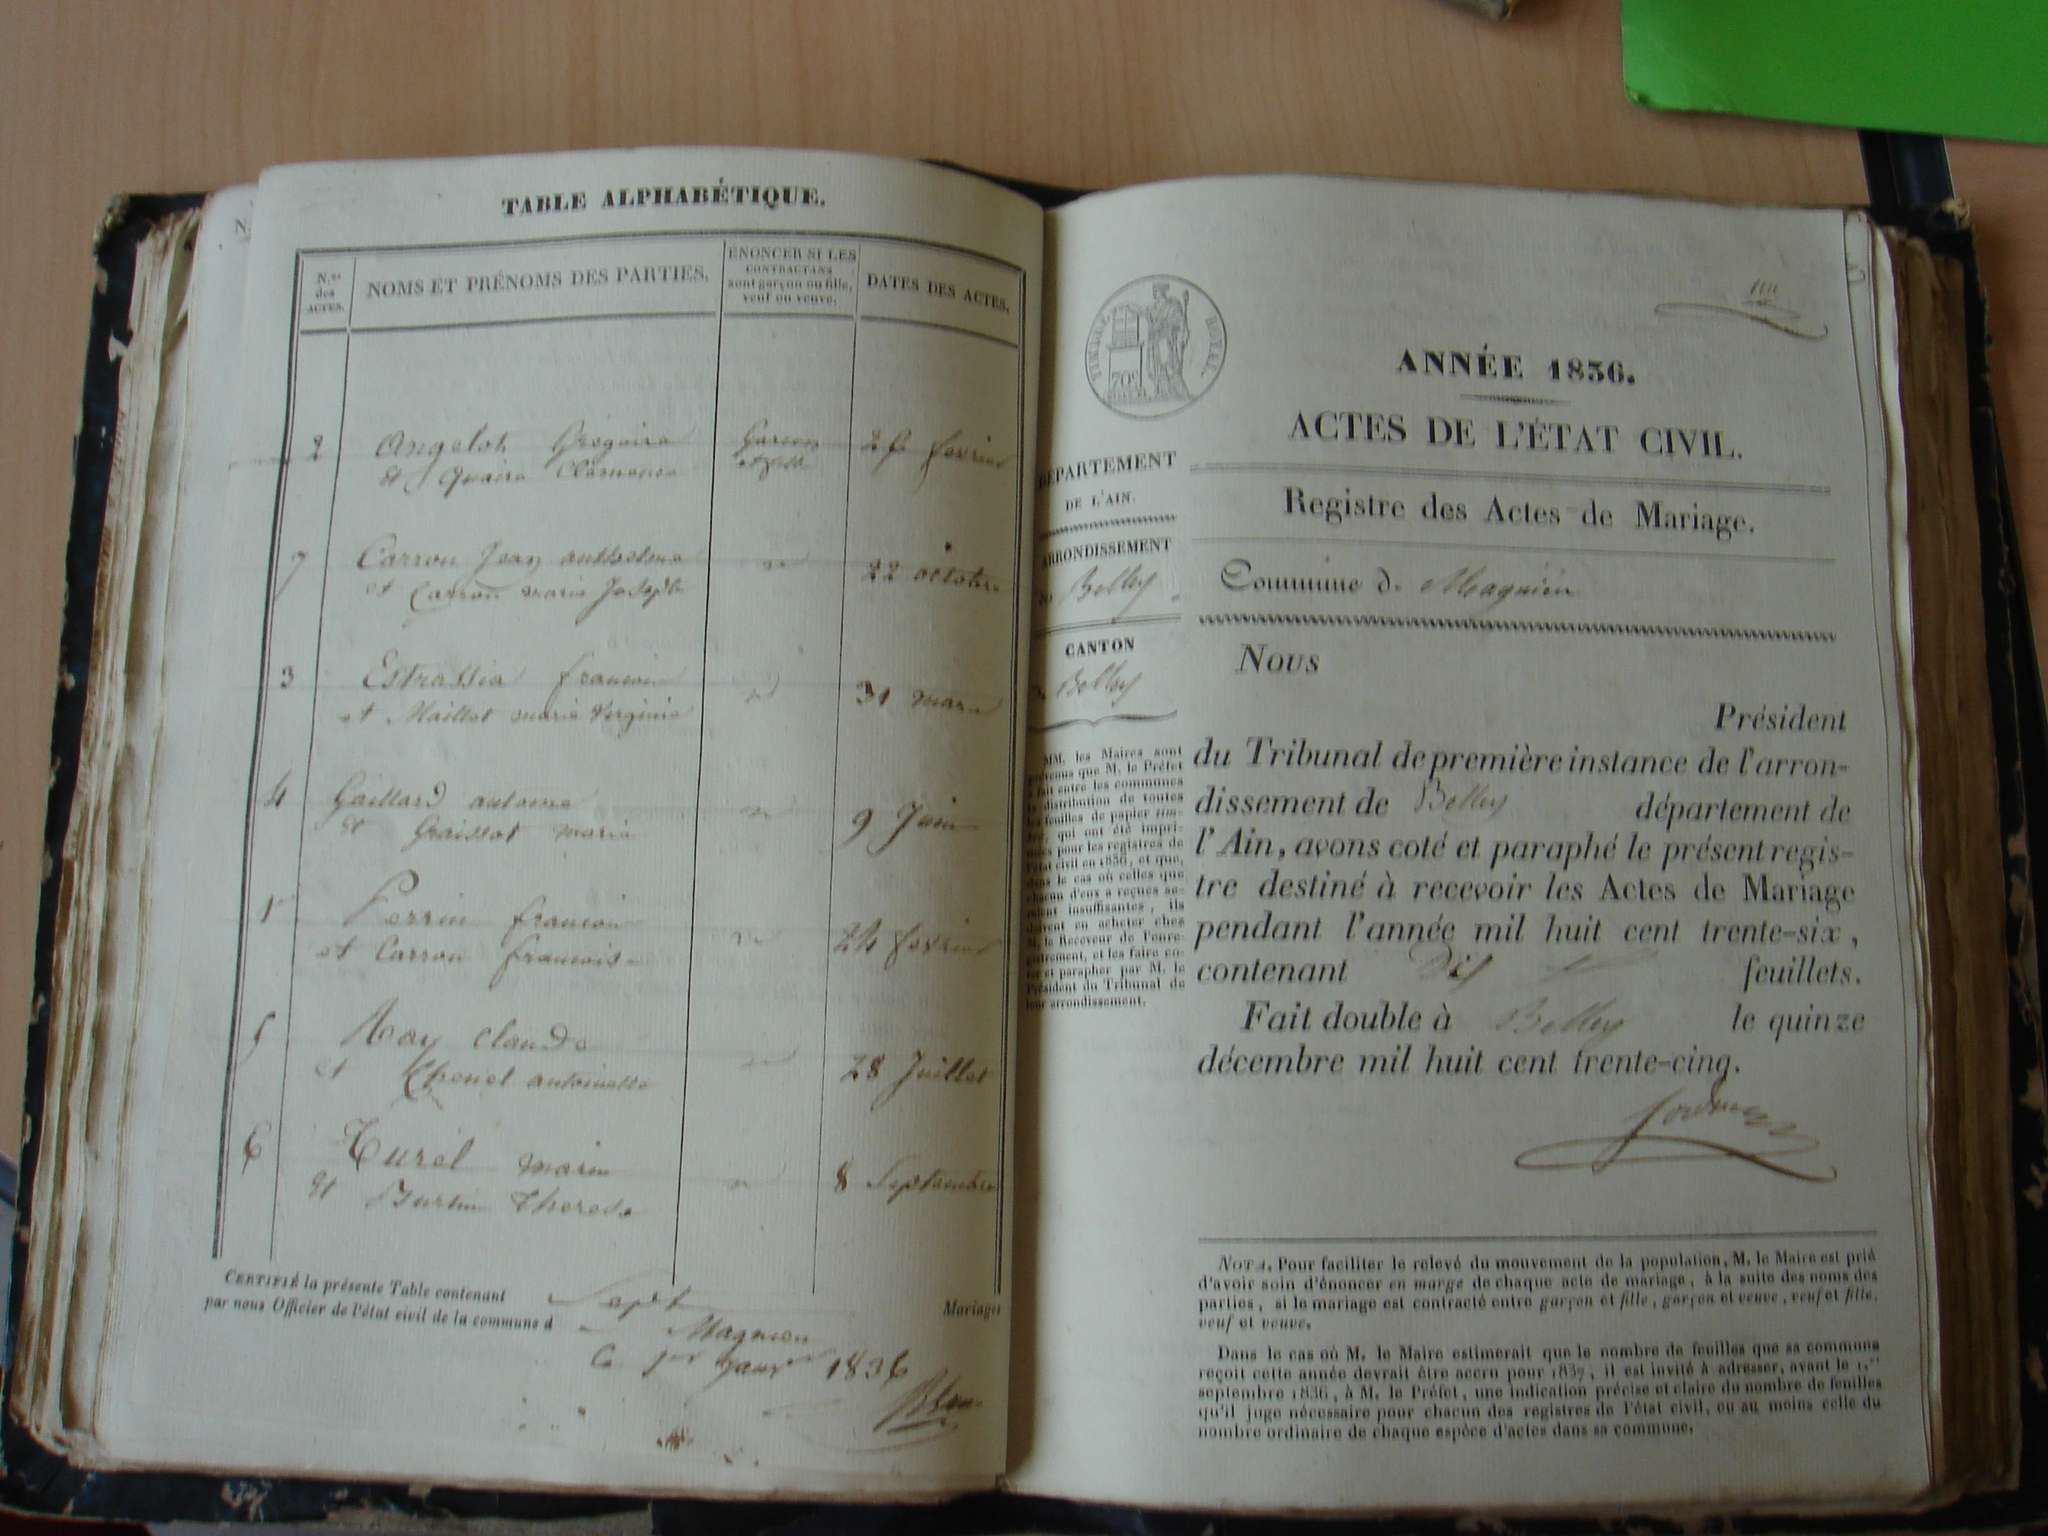 TABLE ALPHABÉTIQUE.
N.os des ACTES.
NOMS ET PRÉNOMS DES PARTIES.
ÉNONCER SI LES
CONTRACTANS
sont garçon ou fille,
veuf ou veuve.
DATES DES ACTES.
2 Angelot Gregoire Garcon 26 fevrier
et Quaire Clémence et fille
7 Carron Jean anthelme 22 octobre
et Carron marie Joseph
3 Estrassia francois 31 mars
et Maillet marie Virginie
4 Gaillard antoine 9 Juin
et Graissot marie
1 Perrin francois 24 fevrier
et Carron francoise
5 Ray Claude 28 Juillet
et Chenel antoinette
6 Turel marin 8 Septembre
et Burlin Therese
CERTIFIÉ la présente Table contenant Sept Mariages
par nous Officier de l'état civil de la commune d Magnieu
le 1er janvr 1836
TIMBRE ROYAL.
70c
ANNÉE 1836.
ACTES DE L'ÉTAT CIVIL.
Registre des Actes de Mariage.
Commune d. Magnieu
DÉPARTEMENT
DE L'AIN.
ARRONDISSEMENT
Belley
CANTON
Belley
MM. les Maires sont
prévenus que M. le Préfet
a fait entre les communes
la distribution de toutes
les feuilles de papier tim-
bré, qui ont été impri-
mées pour les registres de
l'état civil en 1836, et que,
dans le cas où celles que
chacun d'eux a reçues se-
raient insuffisantes, ils
doivent en acheter chez
M. le Receveur de l'enre-
gistrement, et les faire co-
ter et parapher par M. le
Président du Tribunal de
leur arrondissement.
Nous
Président
du Tribunal de première instance de l'arron-
dissement de Belley département de
l'Ain, avons coté et paraphé le présent regis-
tre destiné à recevoir les Actes de Mariage
pendant l'année mil huit cent trente-six,
contenant Dix feuillets.
Fait double à Belley le quinze
décembre mil huit cent trente-cinq.
NOTA. Pour faciliter le relevé du mouvement de la population, M. le Maire est prié
d'avoir soin d'énoncer en marge de chaque acte de mariage, à la suite des noms des
parties, si le mariage est contracté entre garçon et fille, garçon et veuve, veuf et fille,
veuf et veuve.
Dans le cas où M. le Maire estimerait que le nombre de feuilles que sa commune
reçoit cette année devrait être accru pour 1837, il est invité à adresser, avant le 1.er
septembre 1836, à M. le Préfet, une indication précise et claire du nombre de feuilles
qu'il juge nécessaire pour chacun des registres de l'état civil, ou au moins celle du
nombre ordinaire de chaque espèce d'actes dans sa commune.